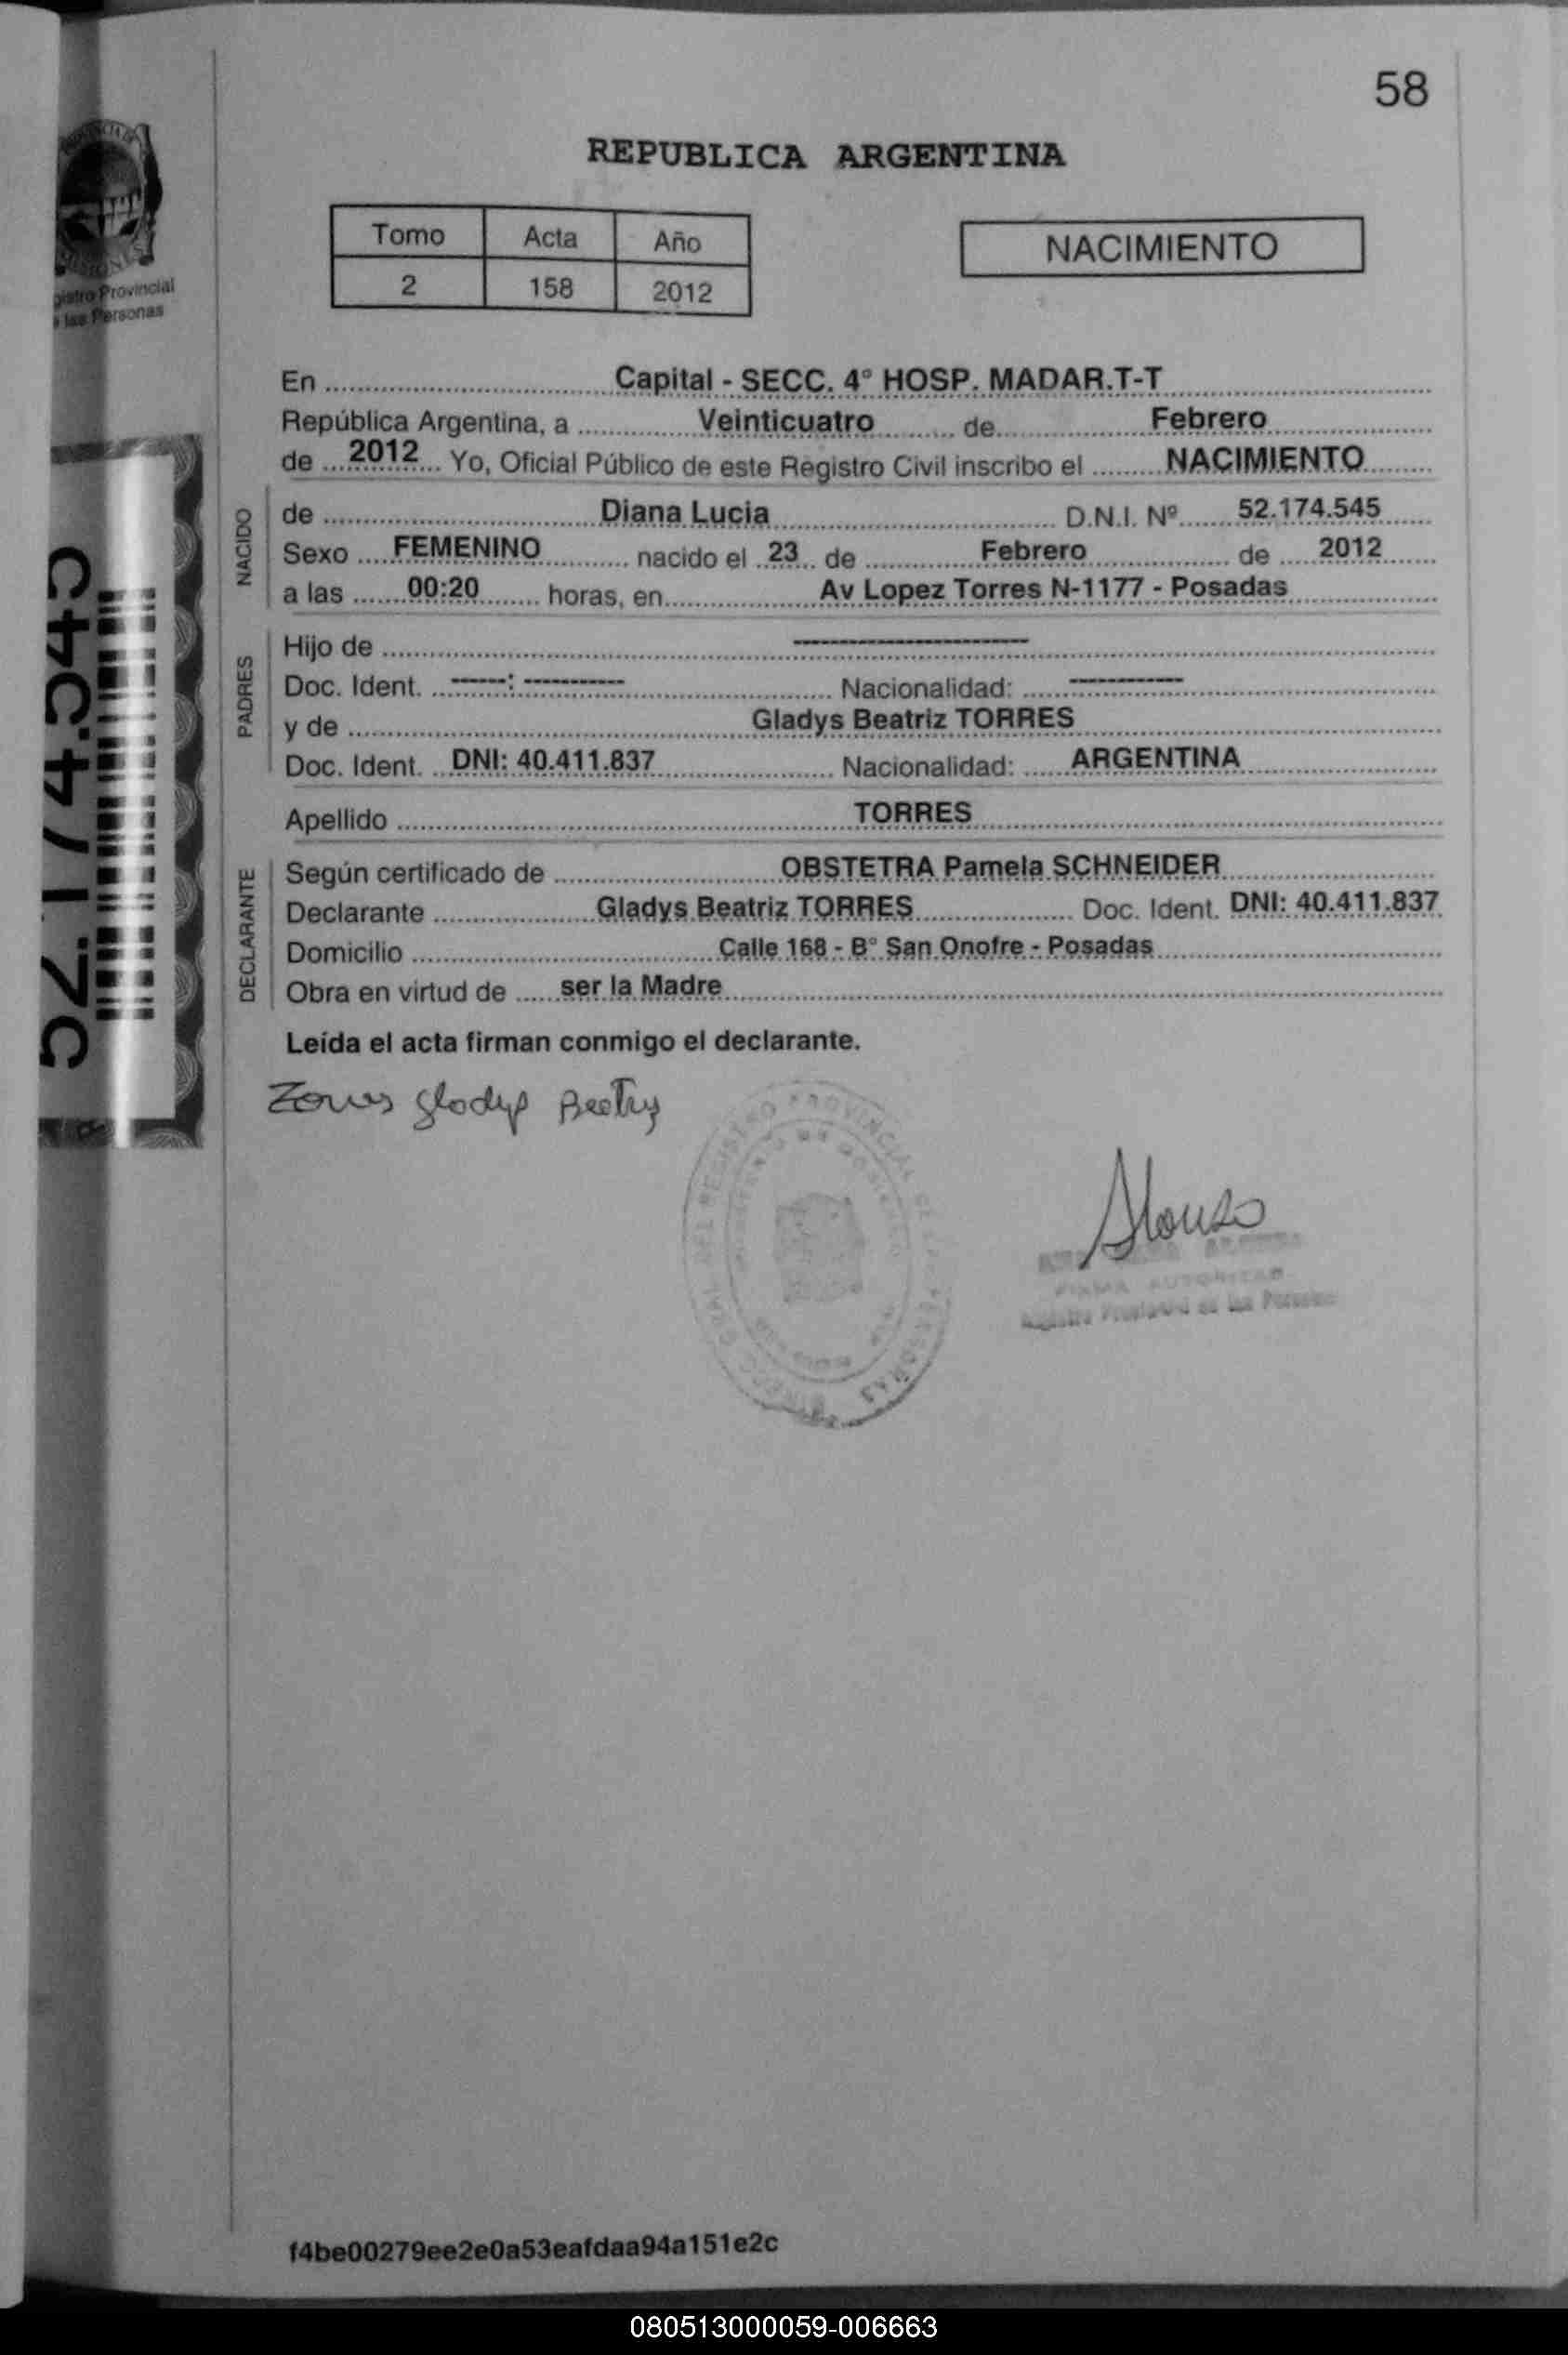 58
REPUBLICA ARGENTINA
Tomo Acta Año
2 158 2012
NACIMIENTO
Provincial
las Personas
En Capital - SECC. 4° HOSP. MADAR.T-T
República Argentina, a Veinticuatro de Febrero
de 2012 Yo, Oficial Público de este Registro Civil inscribo el NACIMIENTO
NACIDO
de Diana Lucia D.N.I. Nº 52.174.545
Sexo FEMENINO nacido el 23 de Febrero de 2012
a las 00:20 horas, en Av Lopez Torres N-1177 - Posadas
PADRES
Hijo de --------------------
Doc. Ident. -----: --------- Nacionalidad: ----------
y de Gladys Beatriz TORRES
Doc. Ident. DNI: 40.411.837 Nacionalidad: ARGENTINA
Apellido TORRES
DECLARANTE
Según certificado de OBSTETRA Pamela SCHNEIDER
Declarante Gladys Beatriz TORRES Doc. Ident. DNI: 40.411.837
Domicilio Calle 168 - B° San Onofre - Posadas
Obra en virtud de ser la Madre
Leída el acta firman conmigo el declarante.
Alonso
FIRMA AUTORIZADA
Registro Provincial de las Personas
f4be00279ee2e0a53eafdaa94a151e2c
080513000059-006663